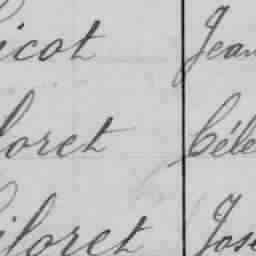 icot Jean
loret Céle
iloret Jose